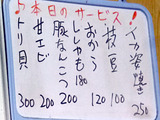 ♪本日のサービス!♪
イカ姿焼き 250
枝豆 100
おから 120
ししゃも 180
豚なんこつ 200
甘エビ 200
トリ貝 300